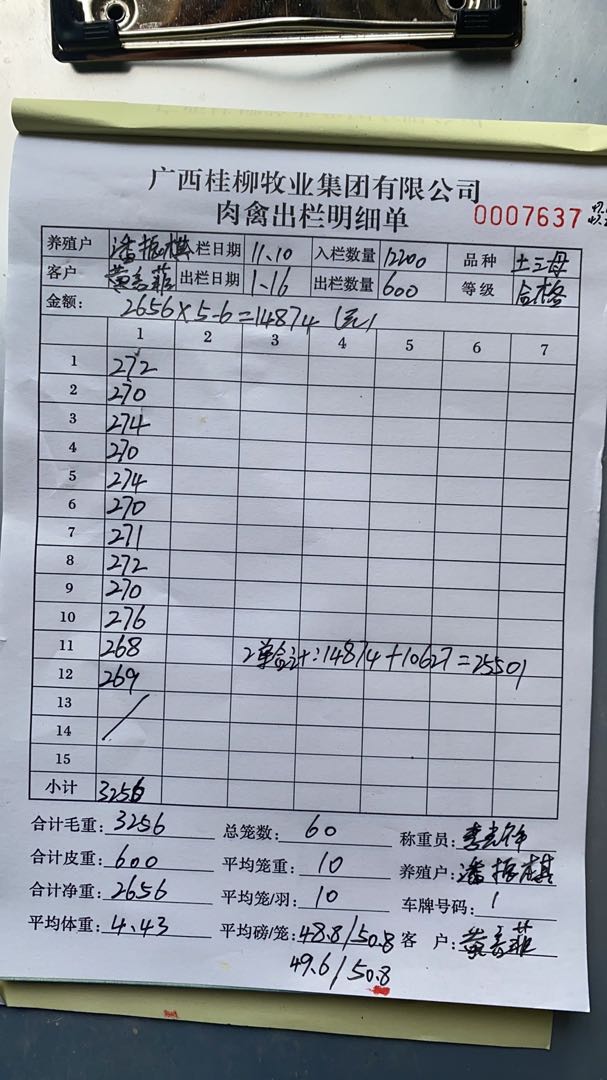 广西桂柳牧业集团有限公司
肉禽出栏明细单 0007637
养殖户 潘振棋 入栏日期 11.10 入栏数量 12200 品种 土三母
客户 黄秀菲 出栏日期 1-16 出栏数量 600 等级 合格
金额: 2656×5-6=14874(元)
1 2 3 4 5 6 7
1 272
2 270
3 274
4 270
5 274
6 270
7 271
8 272
9 270
10 276
11 268 2单合计:14874+10627=25501
12 269
13
14
15
小计 3256
合计毛重: 3256 总笼数: 60 称重员:
合计皮重: 600 平均笼重: 10 养殖户: 潘振棋
合计净重: 2656 平均笼/羽: 10 车牌号码: 1
平均体重: 4.43 平均磅/笼: 48.8/50.8 客 户: 黄秀菲
49.6/50.8